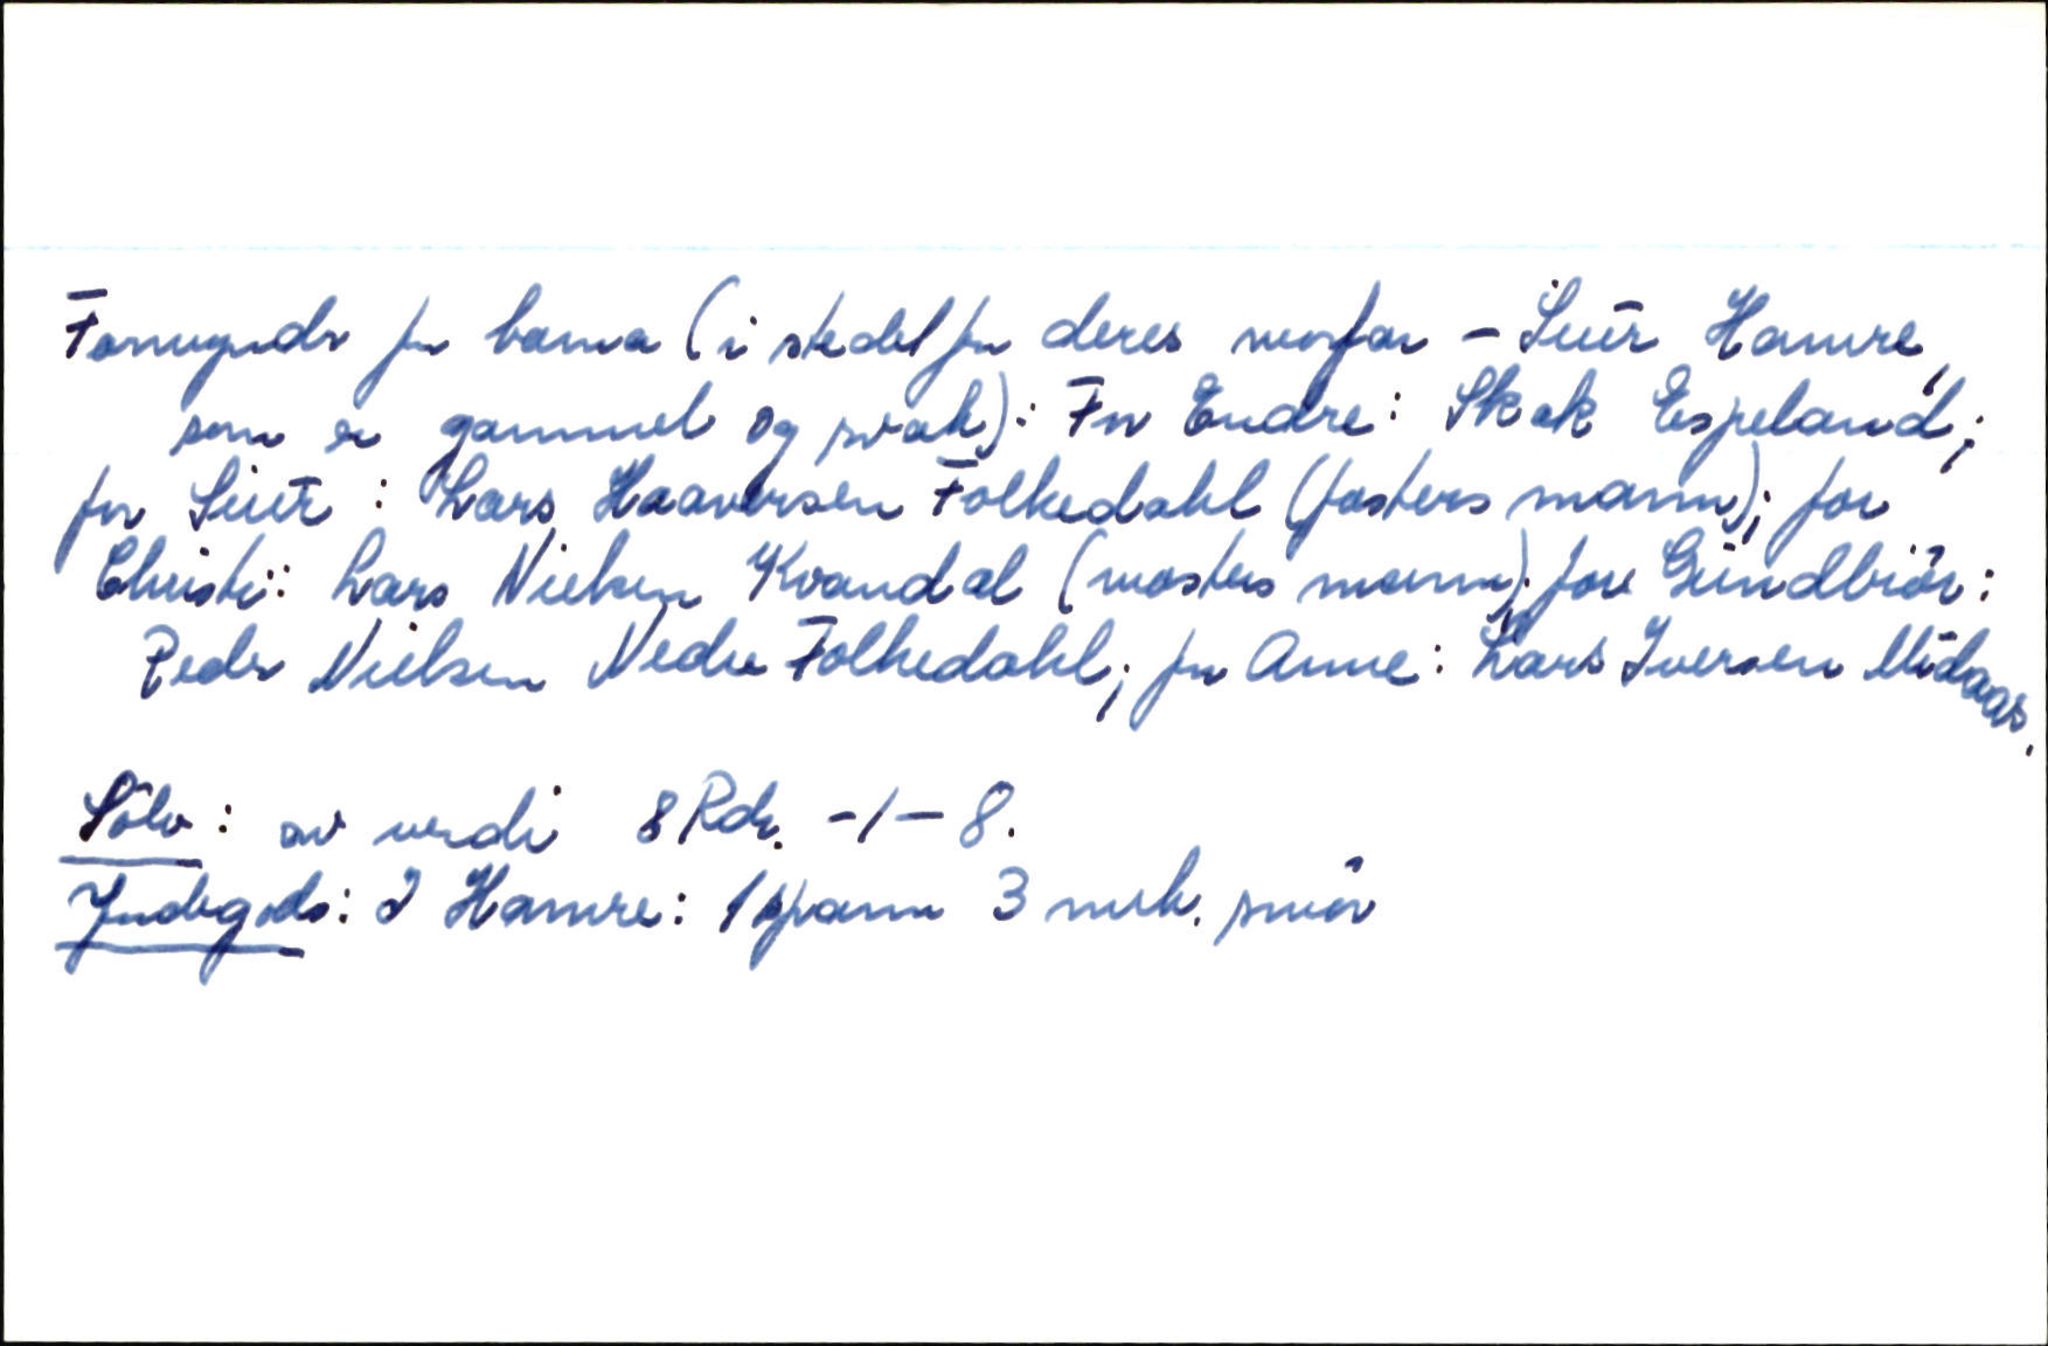 Formynder for barna (i stedet for deres morfar - Siur Hamre,
som er gammel og svak): For Endre: Skak Espeland;
for Siur: Lars Haaversen Folkedahl (fasters mann); for
Christi: Lars Nielsen Kvandal (mosters mann); for Gundbiør:
Peder Nielsen Nedre Folkedahl; for Anne: Lars Iversen Midaas.
Sølv: av verdi 8 Rdr. -1-8.
Jordegods: I Hamre: 1 spann 3 mrk. smør